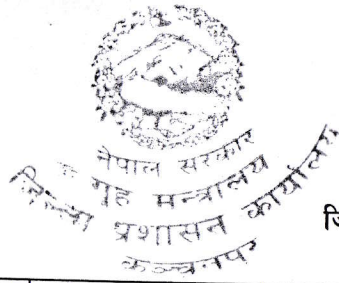 नेपाल सरकार
गृह मन्त्रालय
जिल्ला प्रशासन कार्यालय
कञ्चनपुर
जि